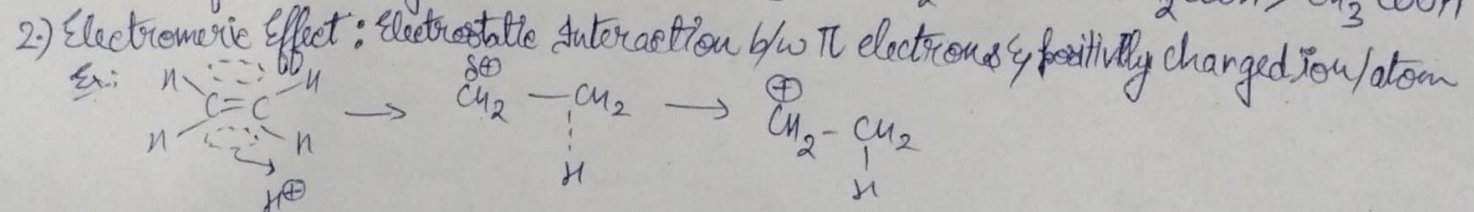 2.) Electromeric Effect : Electrostatic Interaction b/w π electrons & positivtly changed ion/atom
Ex: H H δ⊕ ⊕
C=C → CH2 — CH2 → CH2 - CH2
H H H H
H⊕